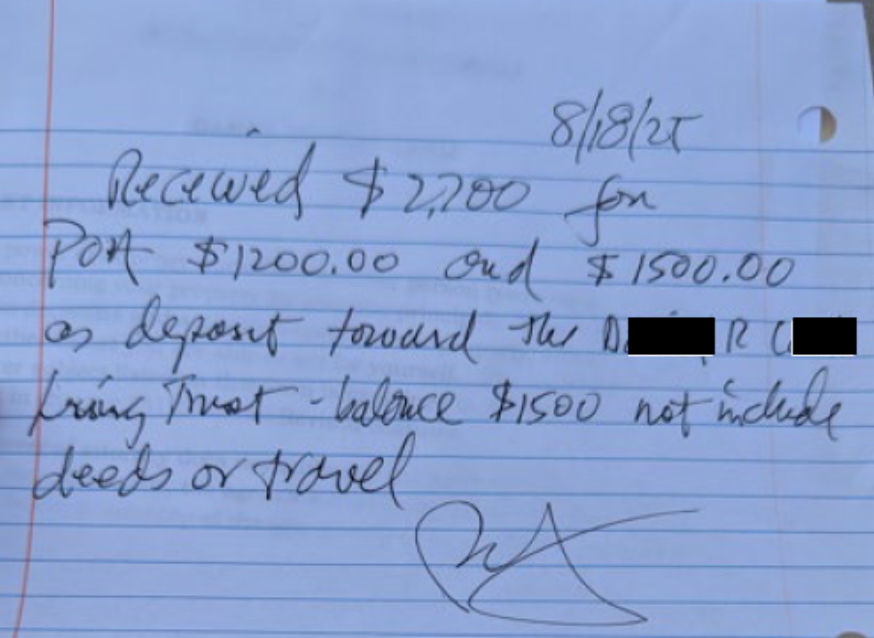 8/18/25
Received $2,700 for
POA $1200.00 and $1500.00
as deposit toward the D R C
Living Trust - balance $1500 not include
deeds or travel